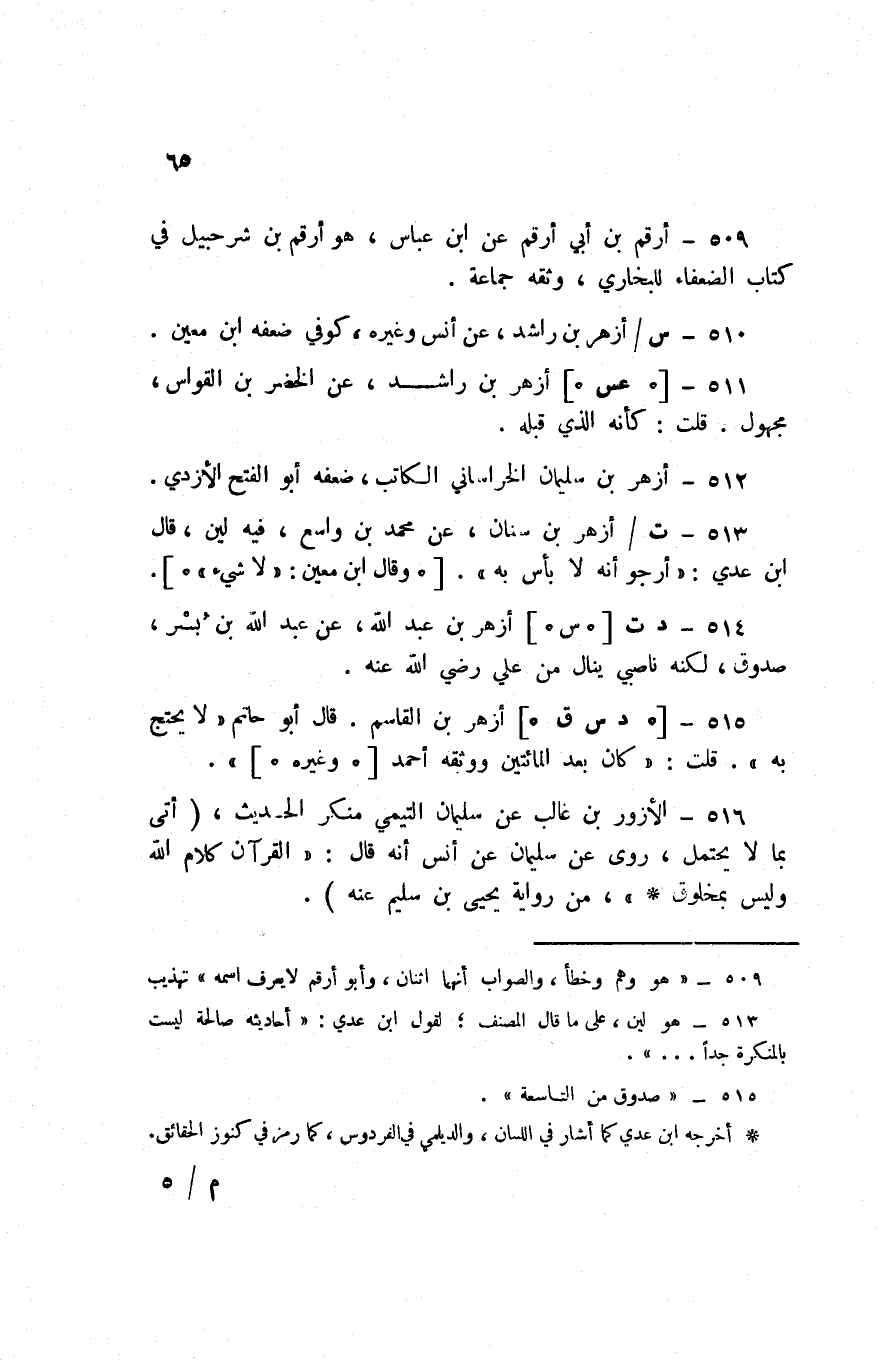 ٦٥
٥٠٩ – أرقم بن أبي أرقم عن ابن عباس ، هو أرقم بن شرحبيل في
كتاب الضعفاء للبخاري ، وثقه جماعة .
٥١٠ – س / أزهر بن راشد ، عن أنس وغيره ، كوفي ضعفه ابن معين .
٥١١ – [ ٥ عس ٥ ] أزهر بن راشـــد ، عن الخضر بن القواس ،
مجهول . قلت : كأنه الذي قبله .
٥١٢ – أزهر بن سليمان الخراساني الكاتب ، ضعفه أبو الفتح الأزدي .
٥١٣ – ت / أزهر بن سنان ، عن محمد بن واسع ، فيه لين ، قال
ابن عدي : « أرجو أنه لا بأس به » . [ ٥ وقال ابن معين : « لا شيء » ٥ ] .
٥١٤ – د ت [ ٥ س ٥ ] أزهر بن عبد الله ، عن عبد الله بن بُسْر ،
صدوق ، لكنه ناصبي ينال من علي رضي الله عنه .
٥١٥ – [ ٥ د س ق ٥ ] أزهر بن القاسم . قال أبو حاتم « لا يحتج
به » . قلت : « كان بعد المائتين ووثقه أحمد [ ٥ وغيره ٥ ] » .
٥١٦ – الأزور بن غالب عن سليمان التيمي منكر الحـديث ، ( أتى
بما لا يحتمل ، روى عن سليمان عن أنس أنه قال : « القرآن كلام الله
وليس بمخلوق * » ، من رواية يحيى بن سليم عنه ) .
٥٠٩ – « هو وهم وخطأ ، والصواب أنهما اثنان ، وأبو أرقم لايعرف اسمه » تهذيب
٥١٣ – هو لين ، على ما قال المصنف ؛ لقول ابن عدي : « أحاديثه صالحة ليست
بالمنكرة جداً . . . » .
٥١٥ – « صدوق من التـاسعة » .
* أخرجه ابن عدي كما أشار في اللسان ، والديلمي في الفردوس ، كما رمز في كنوز الحقائق.
م / ٥